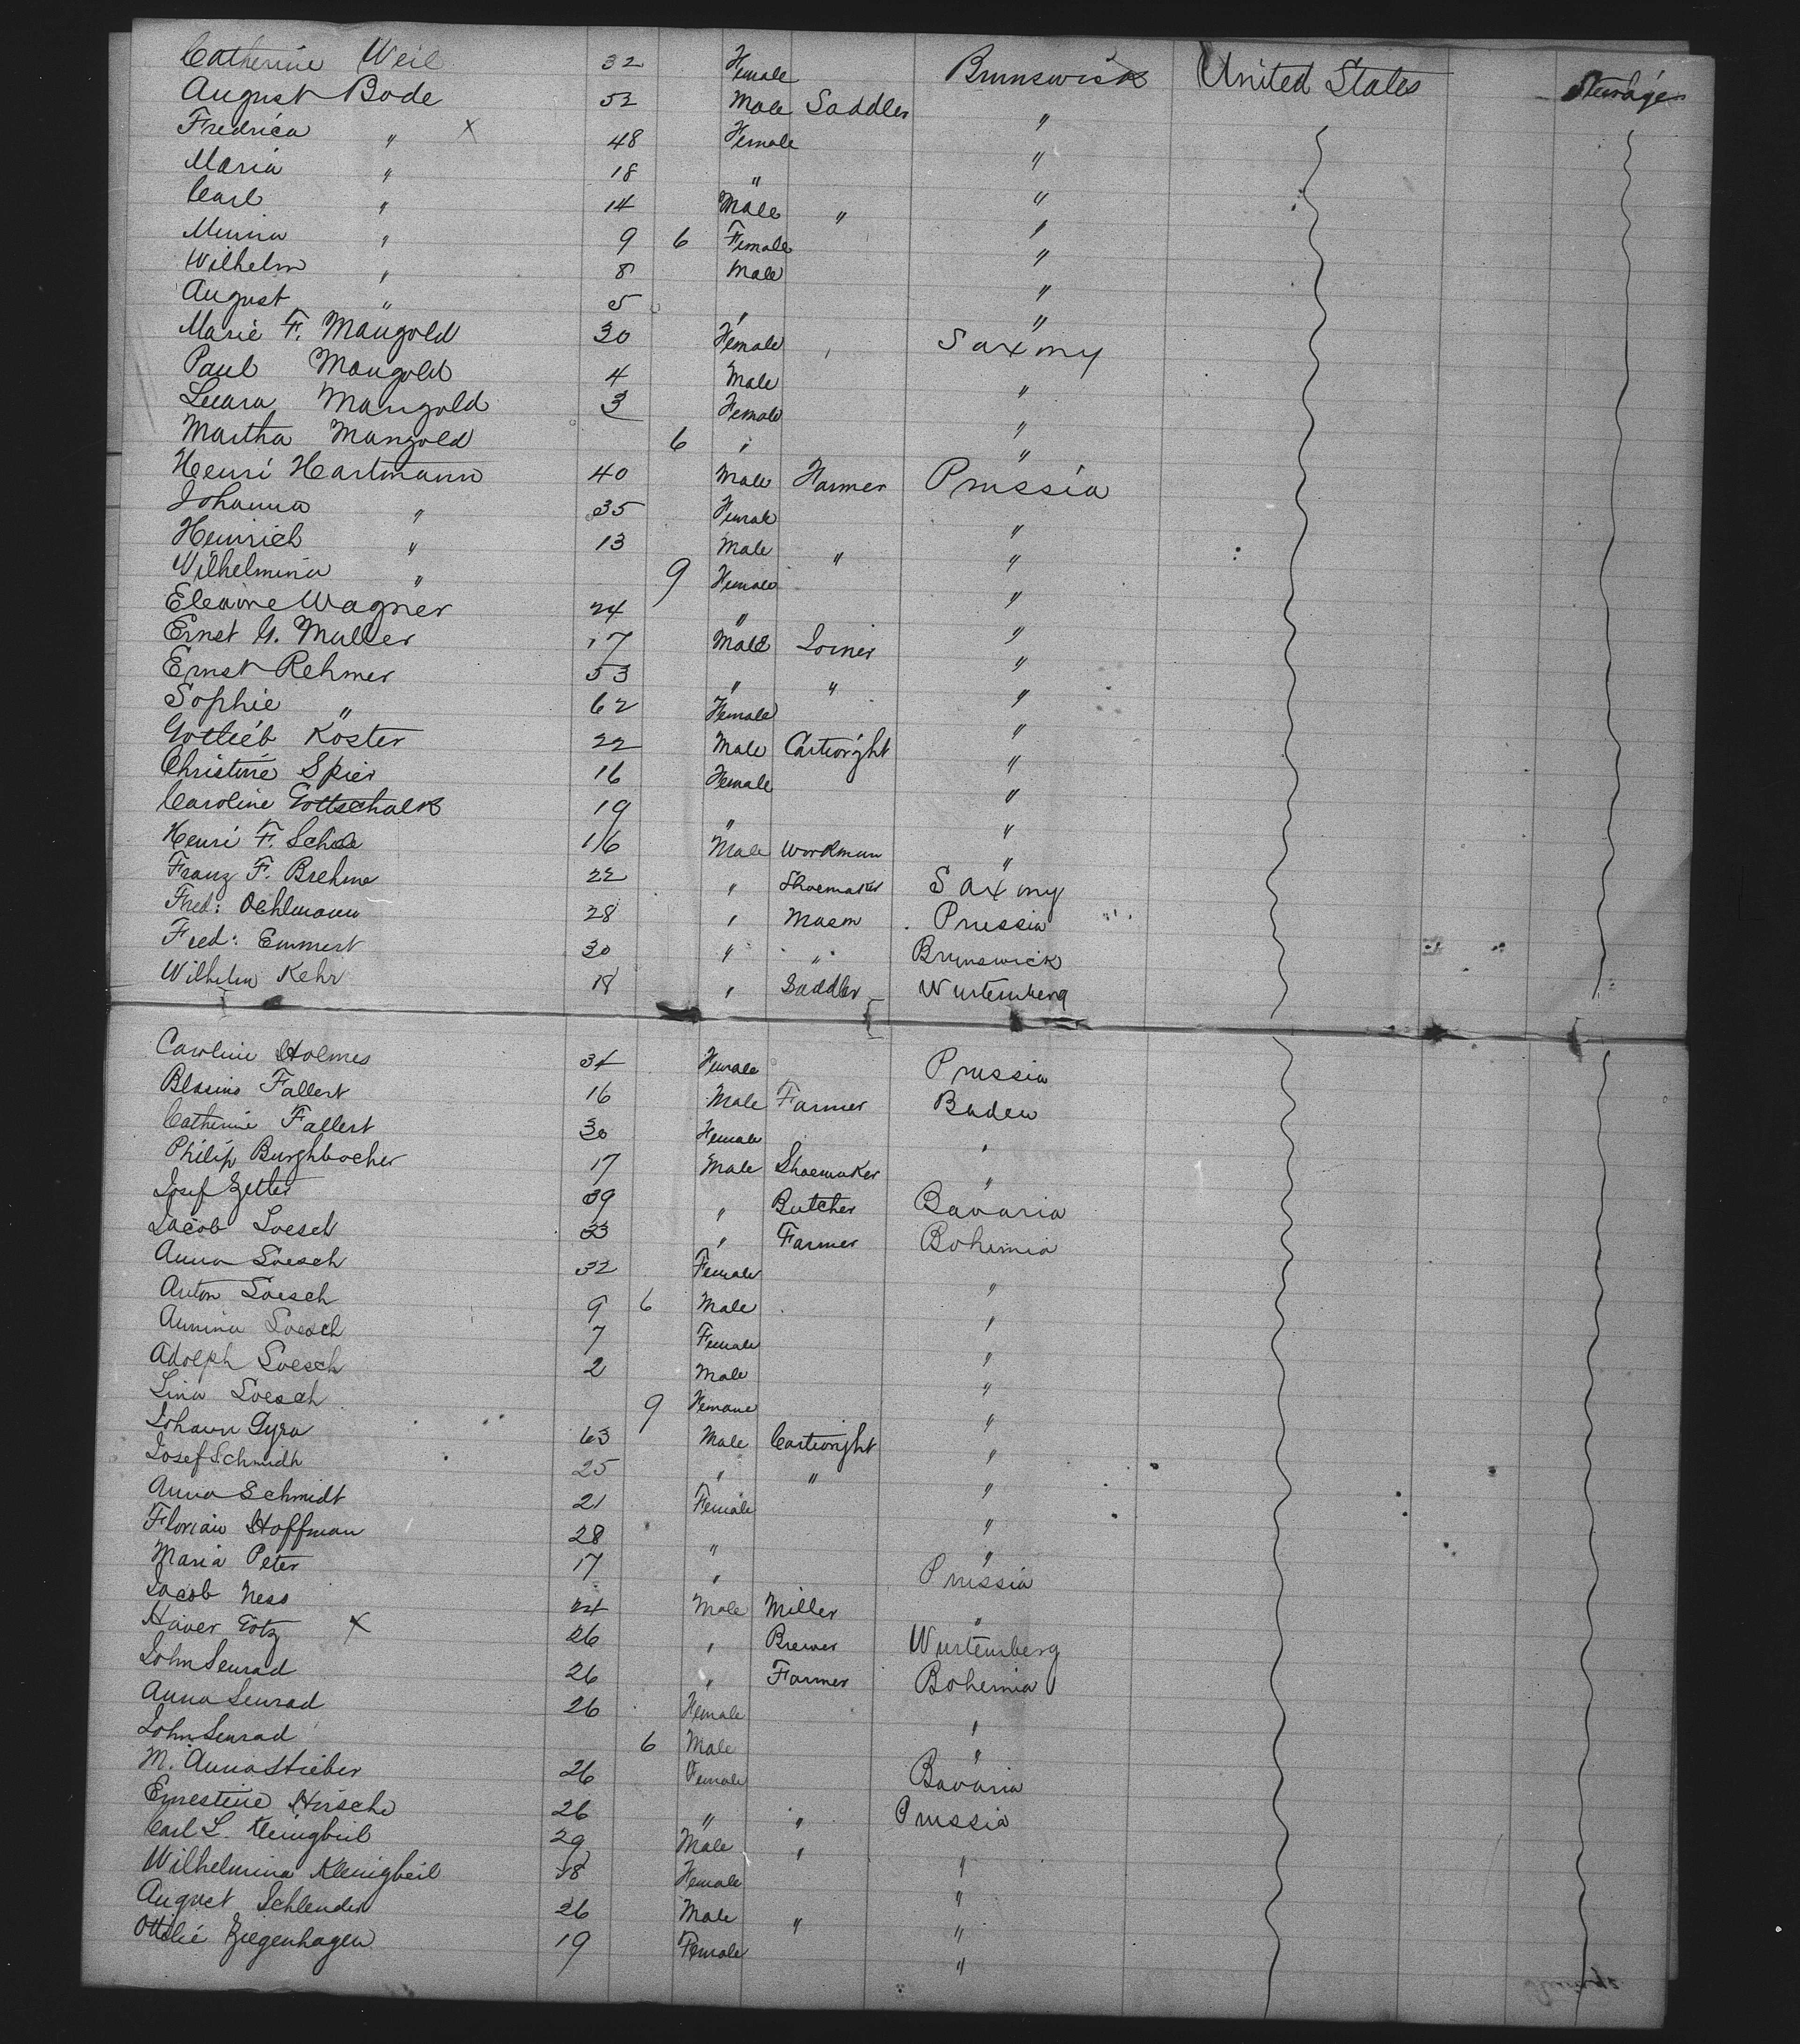 Catherine Weil 32 Female Brunswick United States Steerage
August Bode 52 Male Saddler "
Fredrica " X 48 Female "
Maria " 18 " "
Carl " 14 Male " "
Minna " 9 6 Female "
Wilhelm " 8 Male "
August " 5 " "
Marie F. Mangold 30 Female Saxony
Paul Mangold 4 Male "
Mangold 3 Female "
Martha Mangold 6 " "
Henri Hartmann 40 Male Farmer Prussia
Johanna " 35 Female "
Heinrich " 13 Male " "
Wilhelmina " 9 Female "
Eleanore Wagner 24 " "
Ernst G. Muller 17 Male Joiner "
Ernst Rehmer 53 " " "
Sophie " 62 Female "
Gottlieb Koster 22 Male Cartwright "
Christine Spier 16 Female "
Caroline Gottschalk 19 " "
Henri F. 16 Male Workman "
Franz F. Brehme 22 " Shoemaker Saxony
Fred: Oehlmann 28 " Mason Prussia
Fred: Emmert 30 " " Brunswick
Wilhelm Kehr 18 " Saddler Wurtemberg
Caroline Holmes 34 Female Prussia
Blasius Fallert 16 Male Farmer Baden
Catherine Fallert 30 Female "
Philip Burghbacher 17 Male Shoemaker "
Josef Zetter 39 " Butcher Bavaria
Jacob Loesch 33 " Farmer Bohemia
Anna Loesch 32 Female "
Anton Loesch 9 6 Male "
Annina Loesch 7 Female "
Adolph Loesch 2 Male "
Lina Loesch 9 Female "
Johann Gyra 63 Male Cartwright "
Josef Schmidt 25 " " "
Anna Schmidt 21 Female "
Florian Hoffman 28 " "
Maria Peter 17 " Prussia
Jacob Ness 24 Male Miller "
Xaver Götz X 26 " Brewer Wurtemberg
John Senrad 26 " Farmer Bohemia
Anna Senrad 26 Female "
John Senrad 6 Male "
M. Anna Stieber 26 Female Bavaria
Ernestine Hirsche 26 " " Prussia
Carl L. Kleingbeil 29 Male " "
Wilhelmina Kleingbeil 18 Female "
August Schlender 26 Male " "
Ottilie Ziegenhagen 19 Female "